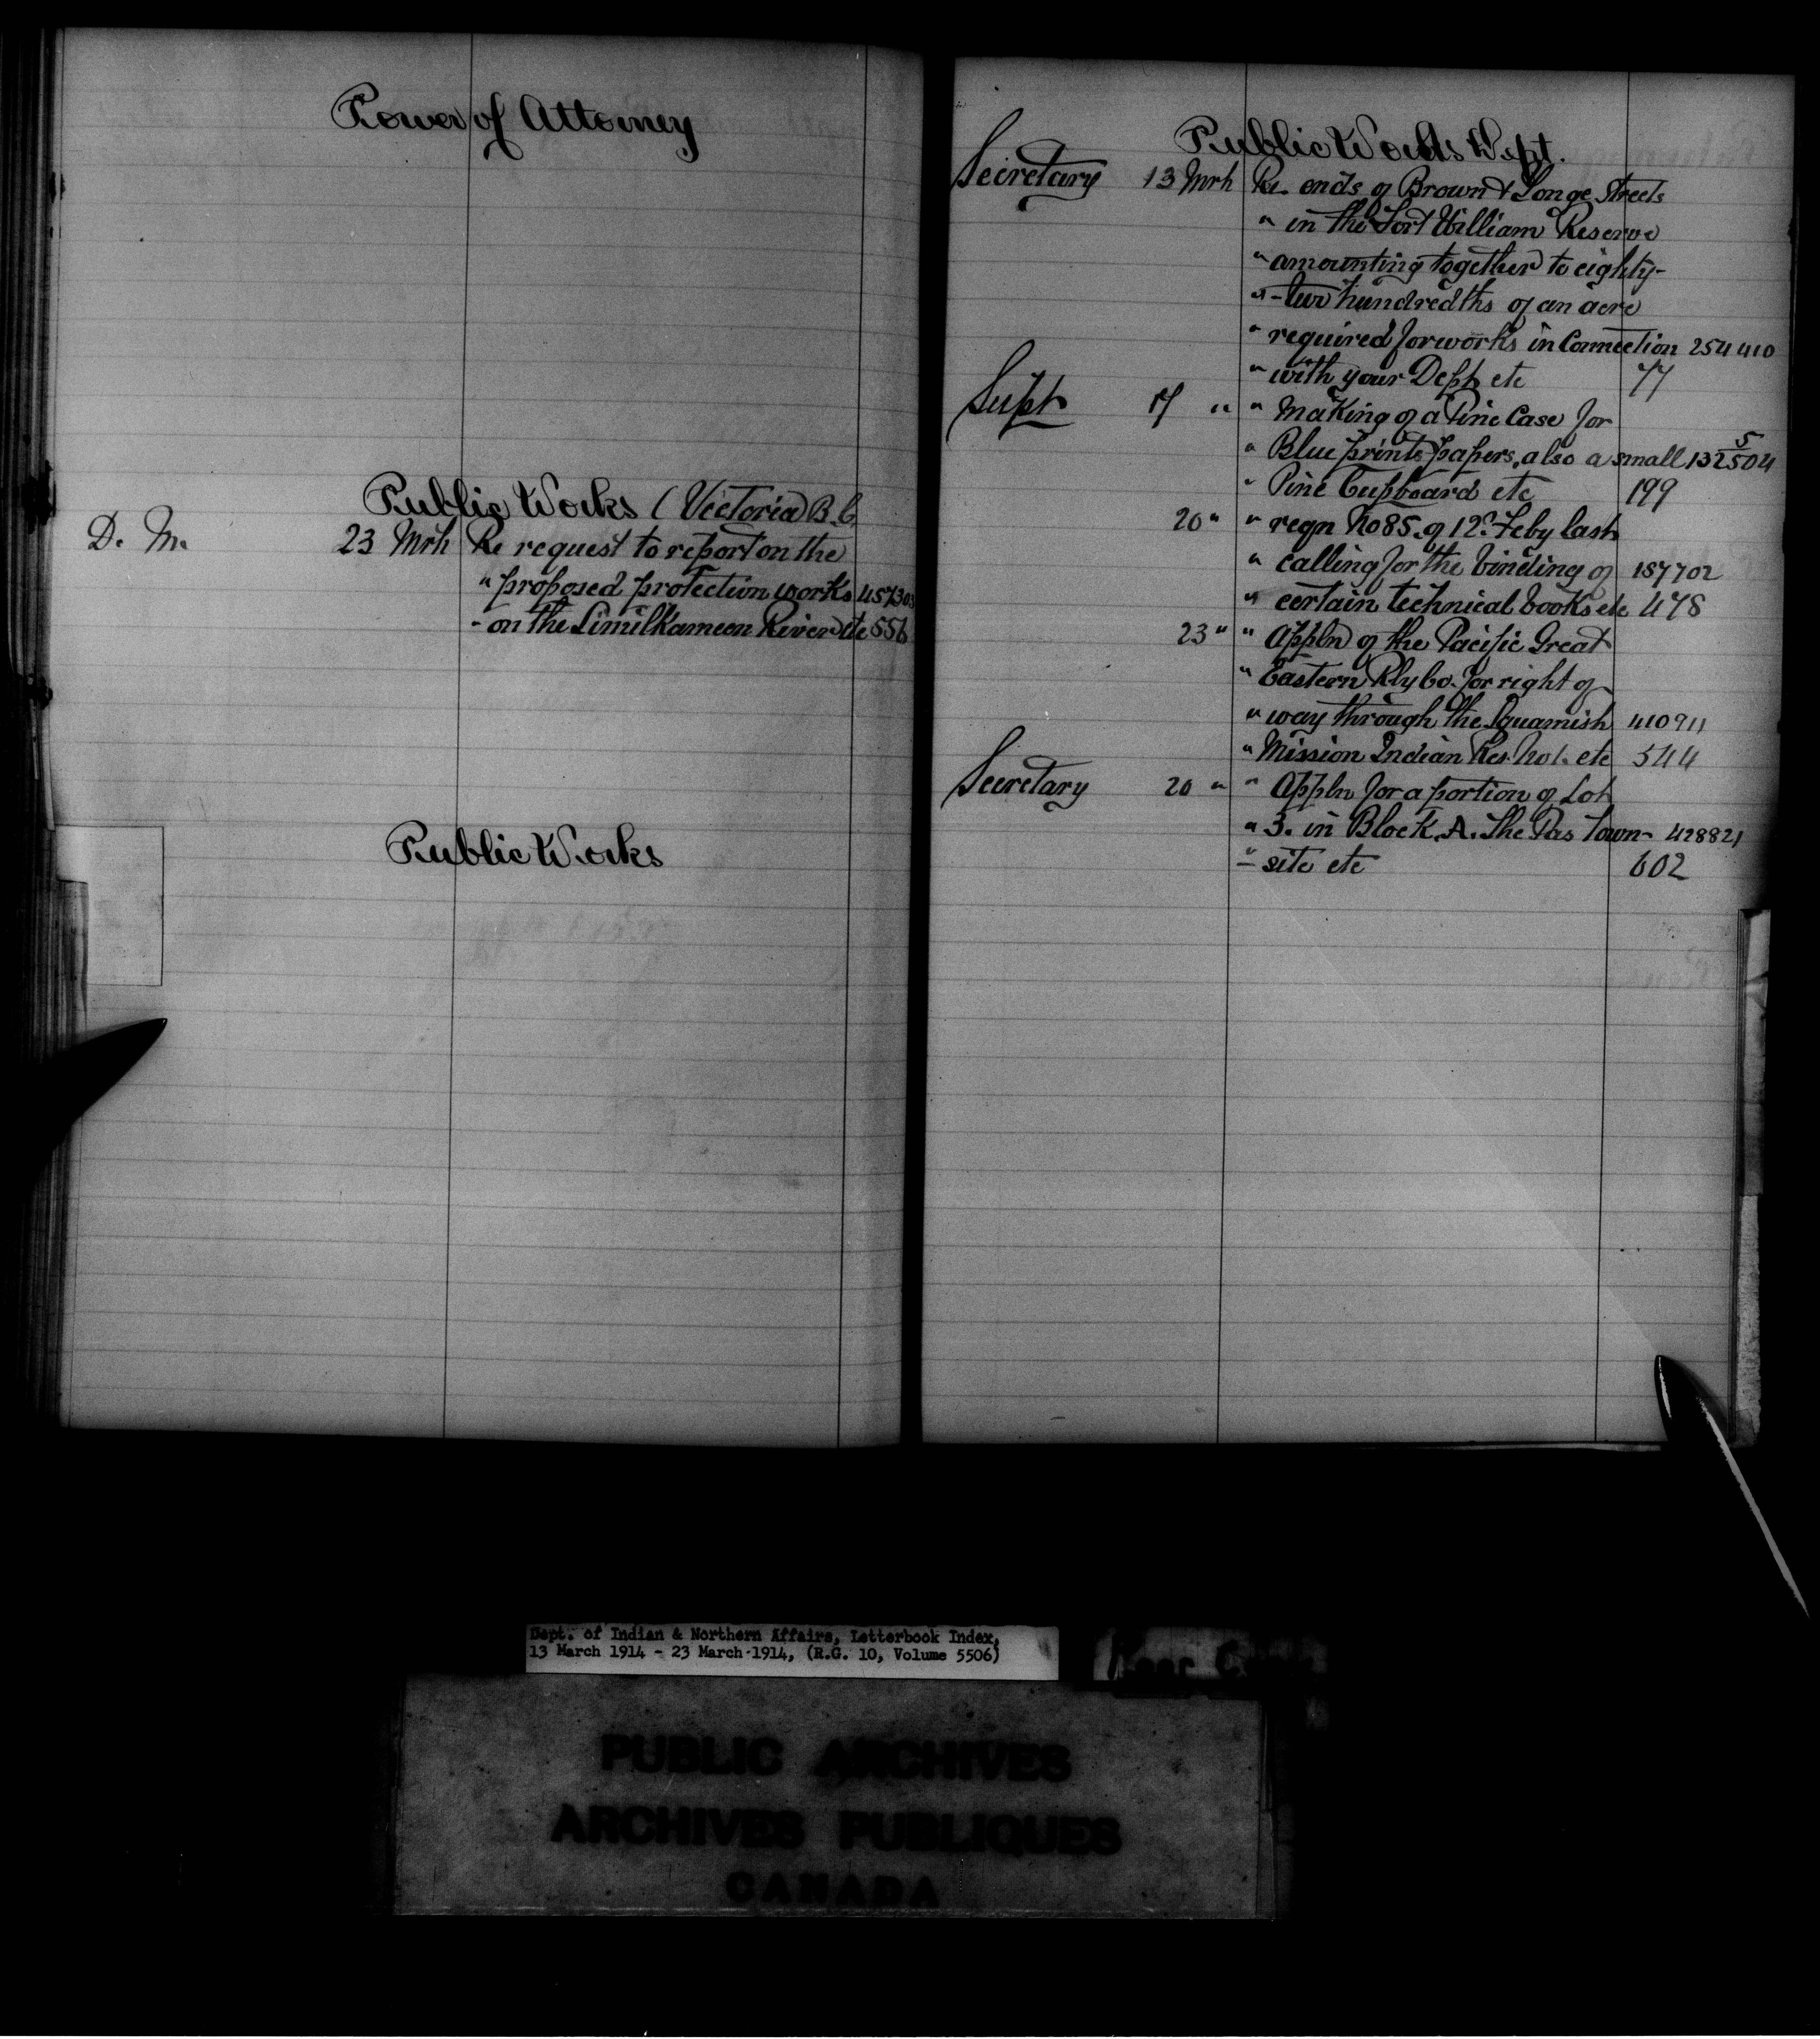 Power of Attorney
Public Works (Victoria B.C.
D. M. 23 Mrh Re request to report on the
" proposed protection works 457303
- on the Similkameen River etc 556
Public Works
Public Works Dept.
Secretary 13 Mrh Re ends of Brown & Longe Streets
" in the Fort William Reserve
" amounting together to eighty-
" - two hundredths of an acre
" required for works in Connection 254410
" with your Dept etc 77
Supt 17 " " Making of a Pine Case for
" Blue prints papers, also a small 132504 5
" Pine Cupboard etc 199
20 " " reqn No 85. of 12th Feby last
" calling for the binding of 157702
" certain technical books etc 478
23 " " Appln of the Pacific Great
" Eastern Rly Co. for right of
" way through the Squamish 410911
" Mission Indian Res. No 1. etc 544
Secretary 20 " " Appln for a portion of Lot
" 3. in Block A. The Pas Town- 428821
" - site etc 602
Dept. of Indian & Northern Affairs, Letterbook Index,
13 March 1914 - 23 March 1914, (R.G. 10, Volume 5506)
PUBLIC ARCHIVES
ARCHIVES PUBLIQUES
CANADA